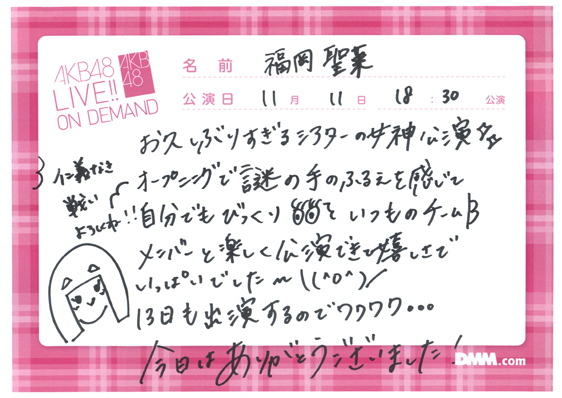 AKB48
LIVE!!
ON DEMAND
AKB
48
名前 福岡聖菜
公演日 11月 11日 18:30 公演
お久しぶりすぎるシアターの女神公演
オープニングで謎の手のふるえを感じて
自分でもびっくり いつものチームB
メンバーと楽しく公演できて嬉しさで
いっぱいでした〜 \(^o^)/
13日も出演するのでワクワク...
今日はありがとうございました!
仁義なき
戦い
よろしくね!!
DMM.com